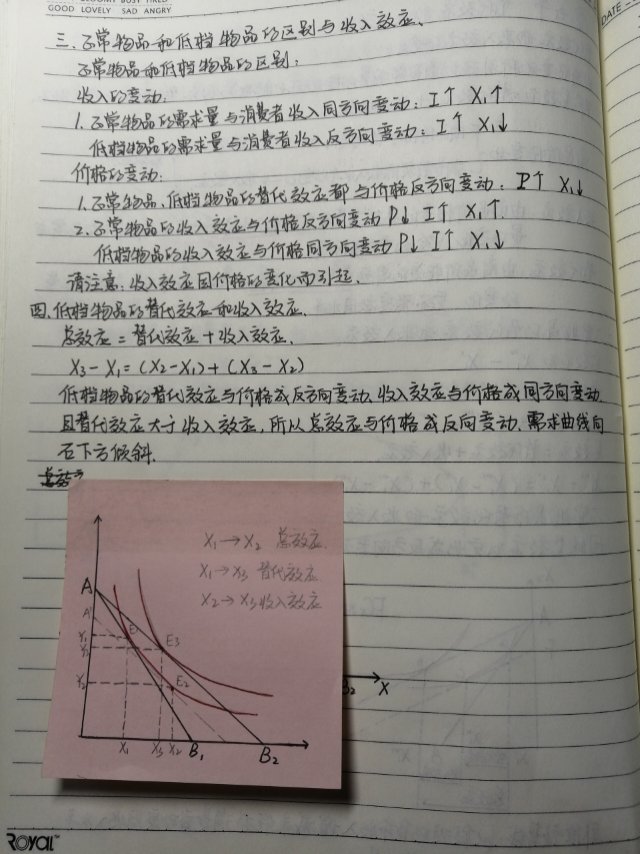 GLOOMY BUSY TIRED
GOOD LOVELY SAD ANGRY
DATE
三、正常物品和低档物品的区别与收入效应.
正常物品和低档物品的区别:
收入的变动:
1. 正常物品的需求量与消费者收入同方向变动: I↑ X₁↑
低档物品的需求量与消费者收入反方向变动: I↑ X₁↓
价格的变动:
1. 正常物品、低档物品的替代效应都与价格反方向变动: P↑ X₁↓
2. 正常物品的收入效应与价格反方向变动 P↓ I↑ X₁↑
低档物品的收入效应与价格同方向变动 P↓ I↑ X₁↓
请注意: 收入效应因价格的变化而引起.
四、低档物品的替代效应和收入效应.
总效应 = 替代效应 + 收入效应.
X₃-X₁=(X₂-X₁)+(X₃-X₂)
低档物品的替代效应与价格成反方向变动、收入效应与价格成同方向变动,
且替代效应大于收入效应, 所以总效应与价格成反向变动、需求曲线向
右下方倾斜.
X₁→X₂ 总效应
X₁→X₃ 替代效应
X₂→X₃ 收入效应
A
A'
Y₁
E₃
Y₃
Y₂ E₂
B₂ X
X₁ X₃ X₂ B₁ B₂
ROYAL™